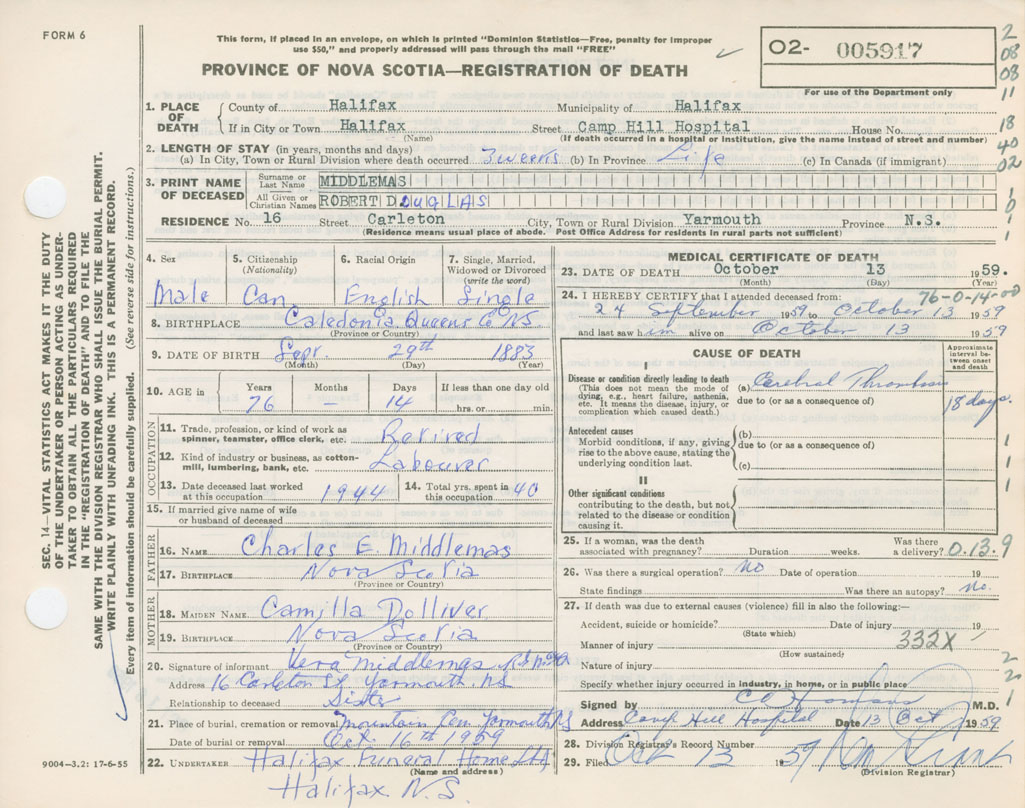 FORM 6
This form, if placed in an envelope, on which is printed "Dominion Statistics—Free, penalty for improper
use $50," and properly addressed will pass through the mail "FREE"
O2- 005917
For use of the Department only
PROVINCE OF NOVA SCOTIA—REGISTRATION OF DEATH
2
08
08
11
18
40
02
SEC. 14—VITAL STATISTICS ACT MAKES IT THE DUTY
OF THE UNDERTAKER OR PERSON ACTING AS UNDER-
TAKER TO OBTAIN ALL THE PARTICULARS REQUIRED
IN THE "REGISTRATION OF DEATH" AND TO FILE THE
SAME WITH THE DIVISION REGISTRAR WHO SHALL ISSUE THE BURIAL PERMIT.
WRITE PLAINLY WITH UNFADING INK. THIS IS A PERMANENT RECORD.
Every item of information should be carefully supplied. (See reverse side for instructions.)
1. PLACE OF DEATH County of Halifax Municipality of Halifax
If in City or Town Halifax (Name) Street Camp Hill Hospital House No.
(If death occurred in a hospital or institution, give the name instead of street and number)
2. LENGTH OF STAY (in years, months and days)
(a) In City, Town or Rural Division where death occurred 3 weeks (b) In Province Life (c) In Canada (if immigrant)
3. PRINT NAME OF DECEASED
Surname or Last Name MIDDLEMAS
All Given or Christian Names ROBERT DOUGLAS
RESIDENCE No. 16 Street Carleton City, Town or Rural Division Yarmouth Province N.S.
(Residence means usual place of abode. Post Office Address for residents in rural parts not sufficient)
4. Sex Male
5. Citizenship (Nationality) Can.
6. Racial Origin English
7. Single, Married, Widowed or Divorced (write the word) Single
8. BIRTHPLACE Caledonia Queens Co NS
(Province or Country)
9. DATE OF BIRTH Sepr. 29th 1883
(Month) (Day) (Year)
10. AGE in Years 76 Months — Days 14 If less than one day old hrs. or min.
OCCUPATION
11. Trade, profession, or kind of work as spinner, teamster, office clerk, etc. Retired
12. Kind of industry or business, as cotton-mill, lumbering, bank, etc. Labourer
13. Date deceased last worked at this occupation 1944
14. Total yrs. spent in this occupation 40
15. If married give name of wife or husband of deceased
FATHER
16. NAME Charles E. Middlemas
17. BIRTHPLACE Nova Scotia
(Province or Country)
MOTHER
18. MAIDEN NAME Camilla Dolliver
19. BIRTHPLACE Nova Scotia
(Province or Country)
20. Signature of informant Vera Middlemas
Address 16 Carleton St. Yarmouth. NS
Relationship to deceased Sister
21. Place of burial, cremation or removal Mountain Cem Yarmouth NS
Date of burial or removal Oct. 16th 1959
22. UNDERTAKER Halifax Funeral Home Ltd
(Name and address)
Halifax N.S.
9004—3.2: 17-6-55
MEDICAL CERTIFICATE OF DEATH
23. DATE OF DEATH October 13 1959.
(Month) (Day) (Year)
24. I HEREBY CERTIFY that I attended deceased from: 76-0-14-00
24 September 1959 to October 13 1959
and last saw him alive on October 13 1959
CAUSE OF DEATH
Approximate interval between onset and death
I
Disease or condition directly leading to death
(This does not mean the mode of dying, e.g., heart failure, asthenia, etc. It means the disease, injury, or complication which caused death.)
(a) Cerebral Thrombosis 18 days.
due to (or as a consequence of)
Antecedent causes
Morbid conditions, if any, giving rise to the above cause, stating the underlying condition last.
(b)
due to (or as a consequence of)
(c)
II
Other significant conditions
contributing to the death, but not related to the disease or condition causing it.
25. If a woman, was the death associated with pregnancy? Duration weeks. Was there a delivery? 0.13.9
26. Was there a surgical operation? No Date of operation 19
State findings Was there an autopsy? No.
27. If death was due to external causes (violence) fill in also the following:—
Accident, suicide or homicide? Date of injury 19
(State which)
Manner of injury 332X
(How sustained)
Nature of injury
Specify whether injury occurred in industry, in home, or in public place
Signed by M.D.
Address Camp Hill Hospital Date 13 Oct 1959
28. Division Registrar's Record Number
29. Filed Oct 13 1959
(Division Registrar)